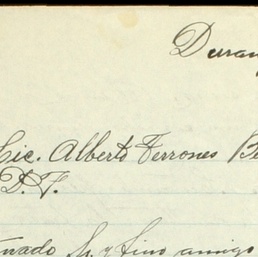 Duran
Lic. Alberto Terrones Be
D.F.
mado Sr. y fino amigo